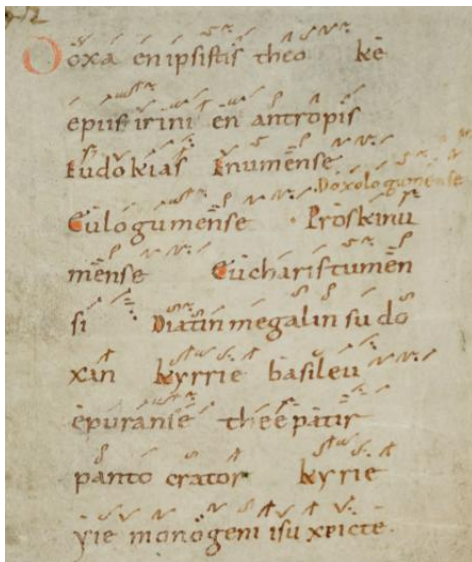 Doxa en ipsistis theo ke
irini en antropis
Eudokias Enumense
Doxologumense
Eulogumense Proskinu
mense Eucharistumen
si Diatin megalin su do
xan kyrrie basileu
epuranie thee patir
panto crator kyrie
yie monogeni isu xpicte.